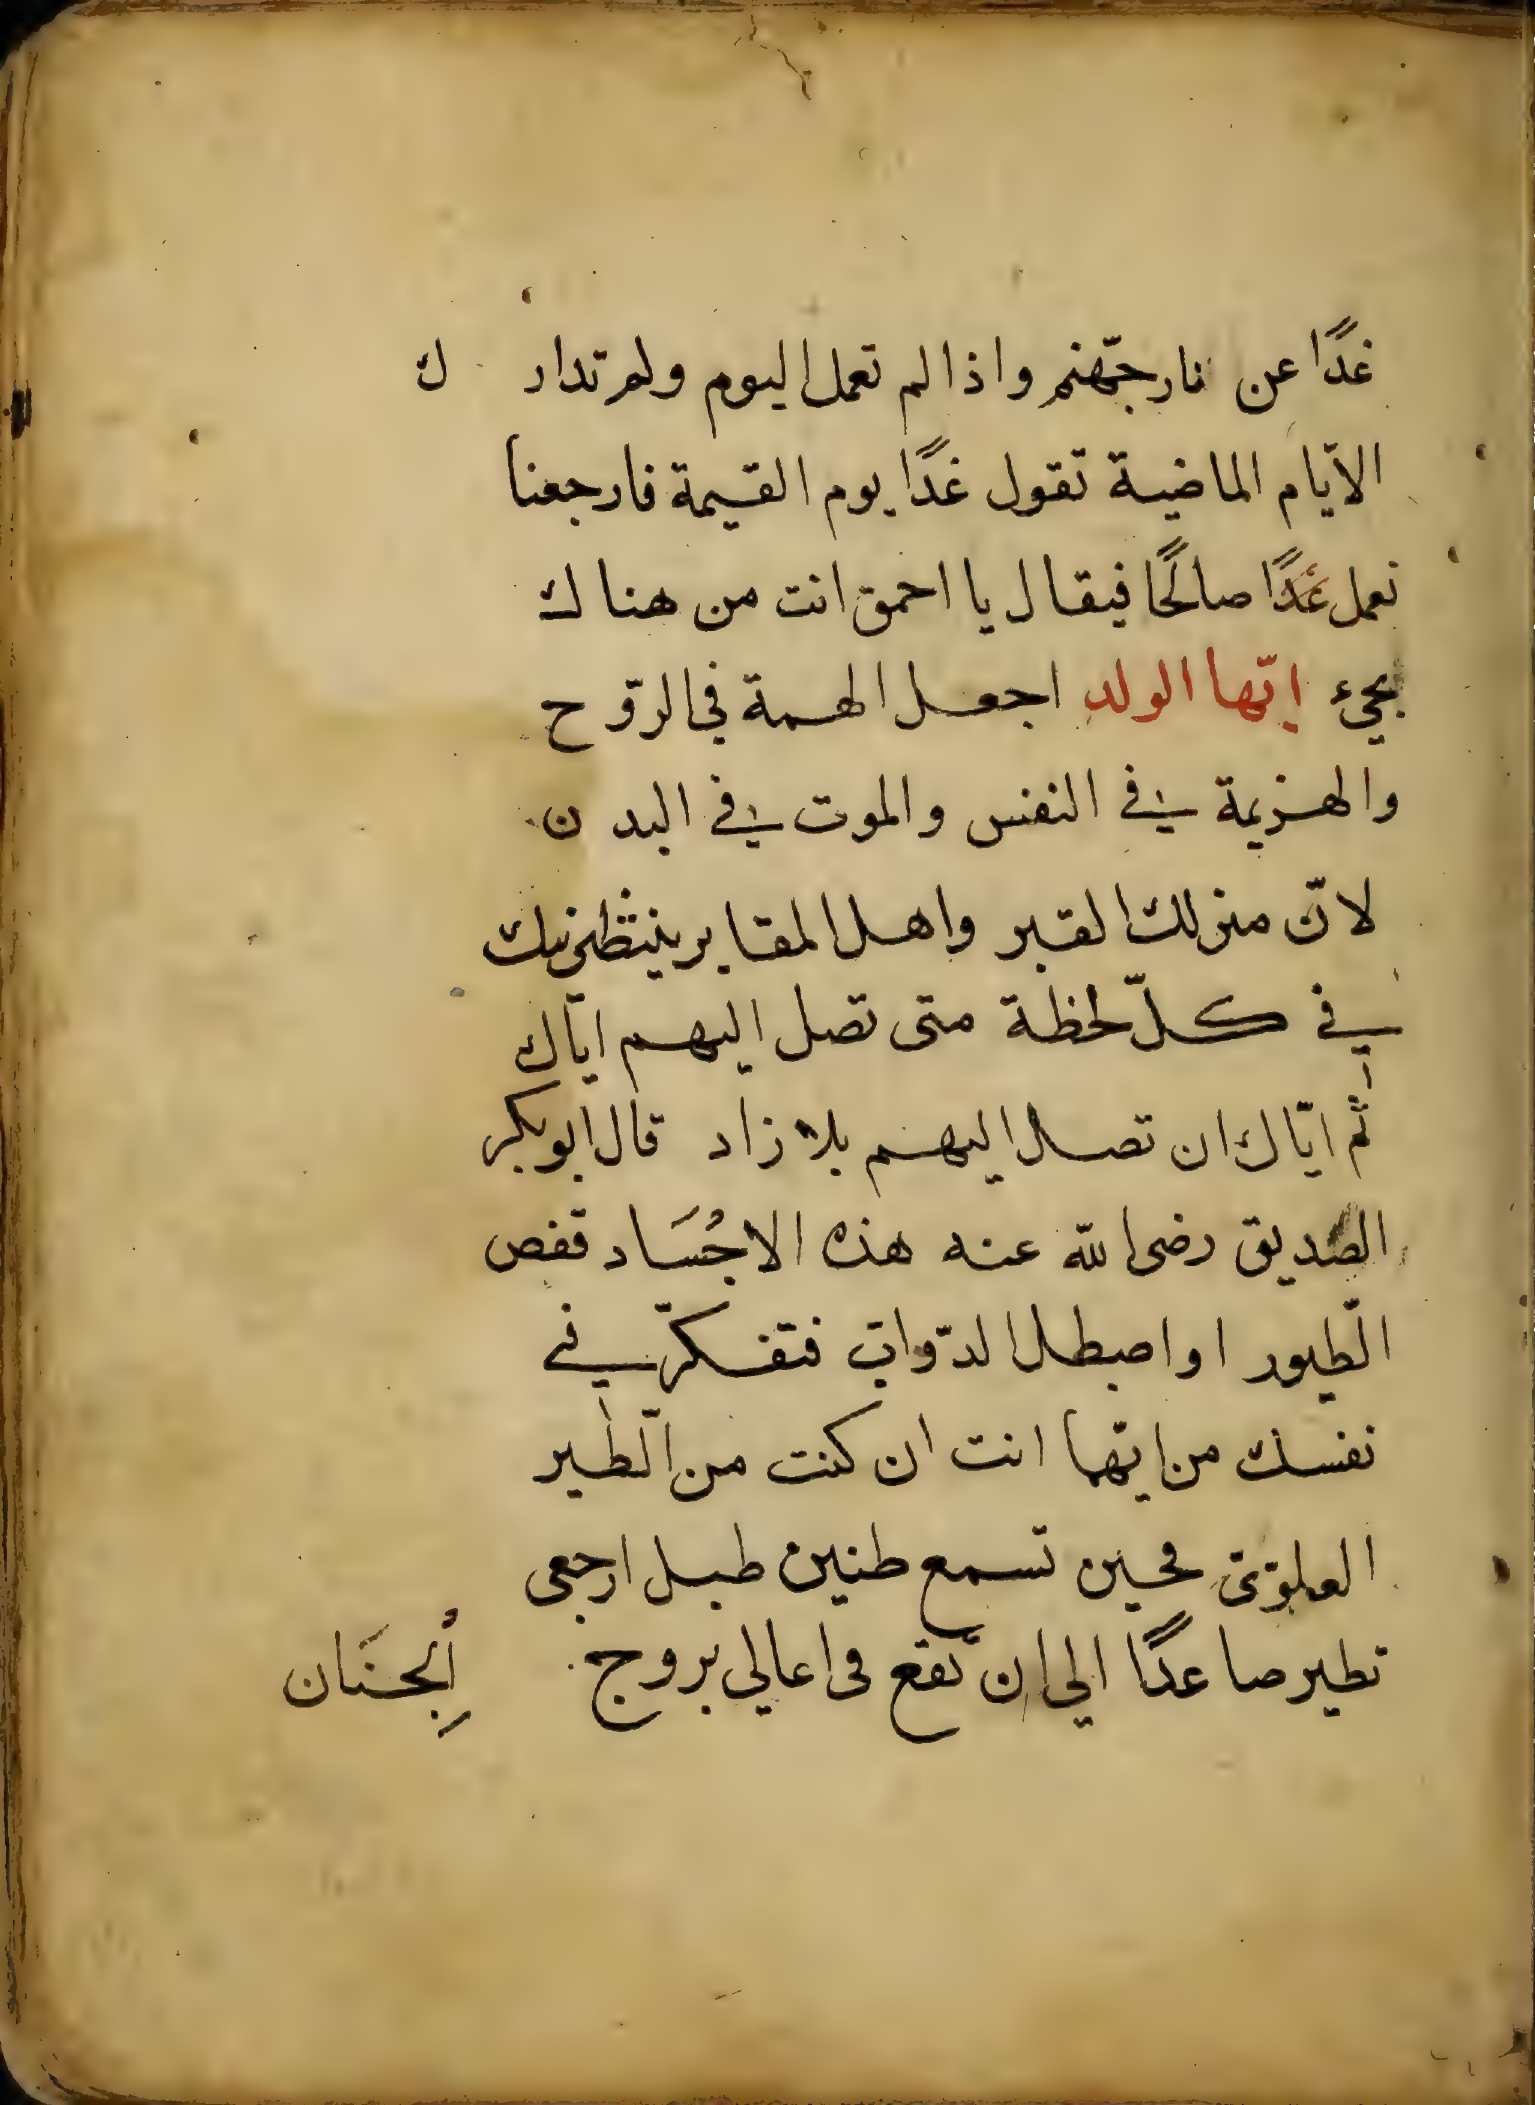 غدًا عن نار جهّنم واذا لم تعمل اليوم ولم تدارك
الايّام الماضية تقول غدًا يوم القيمة فارجعنا
نعمل غدًا صالحًا فيقال يا احمق انت من هناك
يجيء ايّها الولد اجعل الهمة في الروّح
والهزيمة في النفس والموت في البدن
لانّ منزلك القبر واهل المقابر ينتظرنيك
في كلّ لحظة متى تصل اليهم ايّاك
ثم ايّاك ان تصل اليهم بلا زاد قال ابوبكر
الصديق رضى الله عنه هذه الاجْسَاد قفص
الطّيور او اصطبل الدّواب فتفكّر في
نفسك من ايّهما انت ان كنت من الطّير
العلويّ فحين تسمع طنين طبل ارجعى
تطير صاعدًا الي ان تقع فى اعالي بروج الْجِنَان